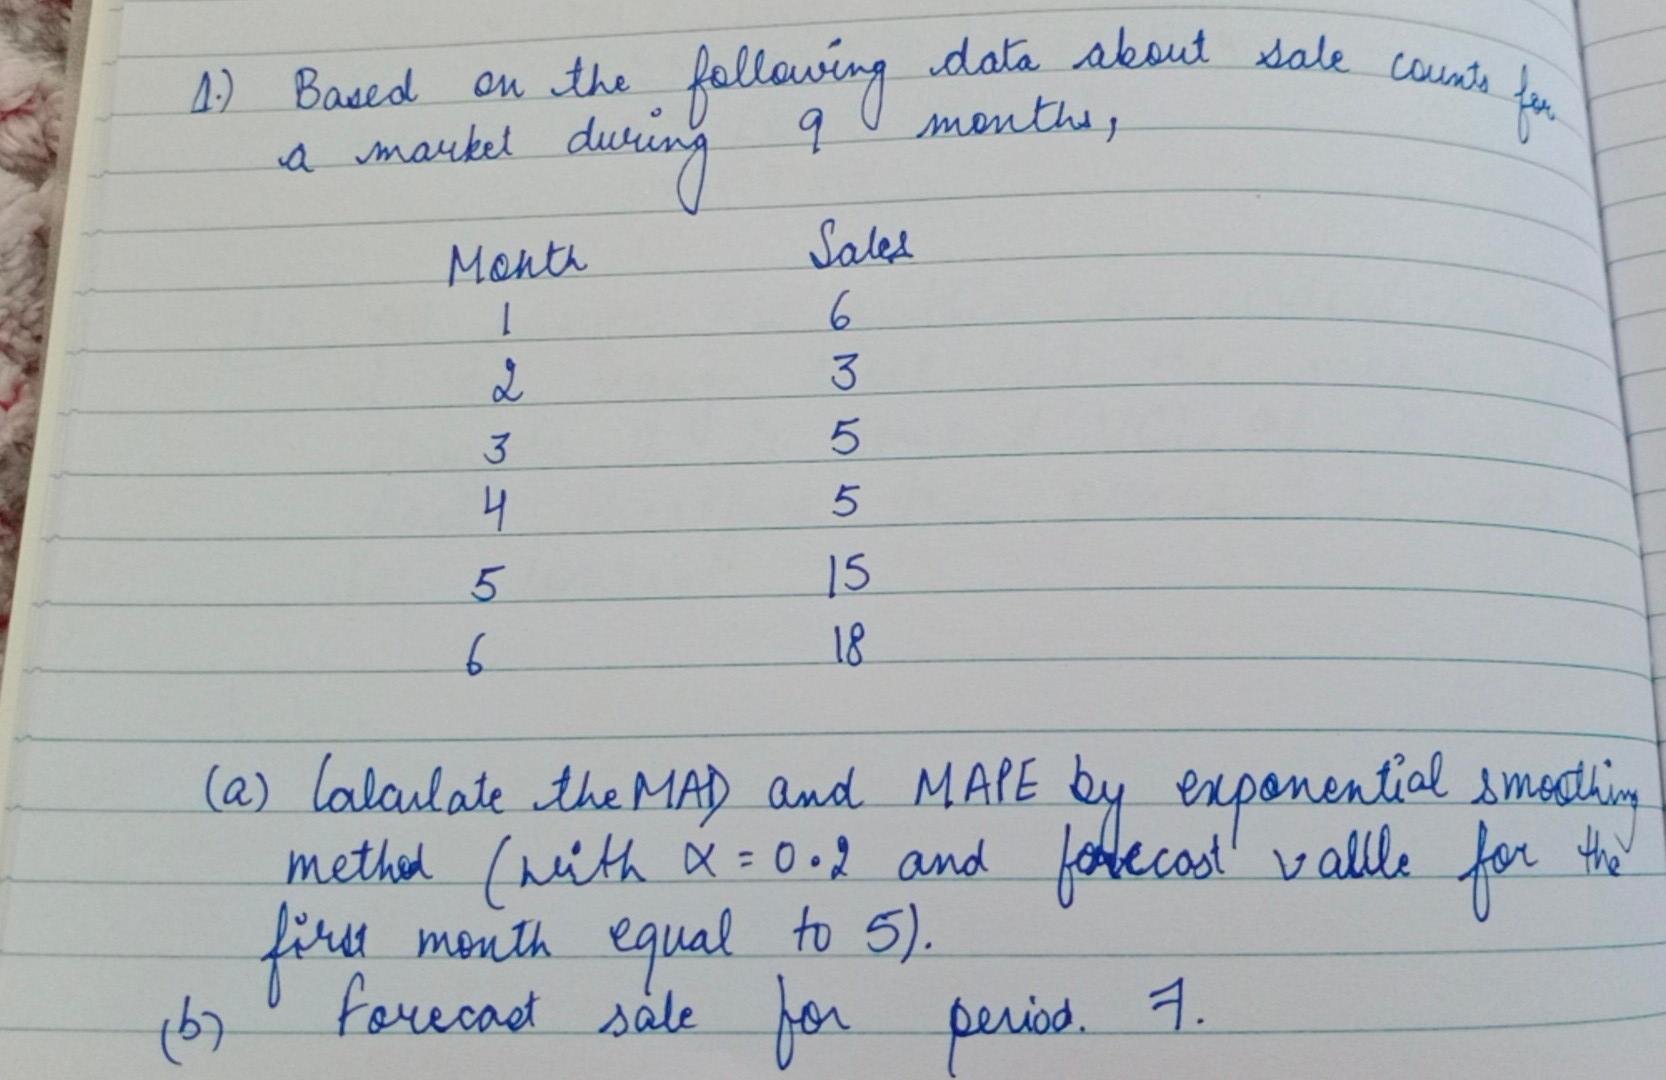 1.) Based on the following data about sale counts for
a market during 9 months,
Month Sales
1 6
2 3
3 5
4 5
5 15
6 18
(a) Calculate the MAD and MAPE by exponential smoothing
method (with α = 0.2 and forecast vallle for the
first month equal to 5).
(b) Forecast sale for period. 7.